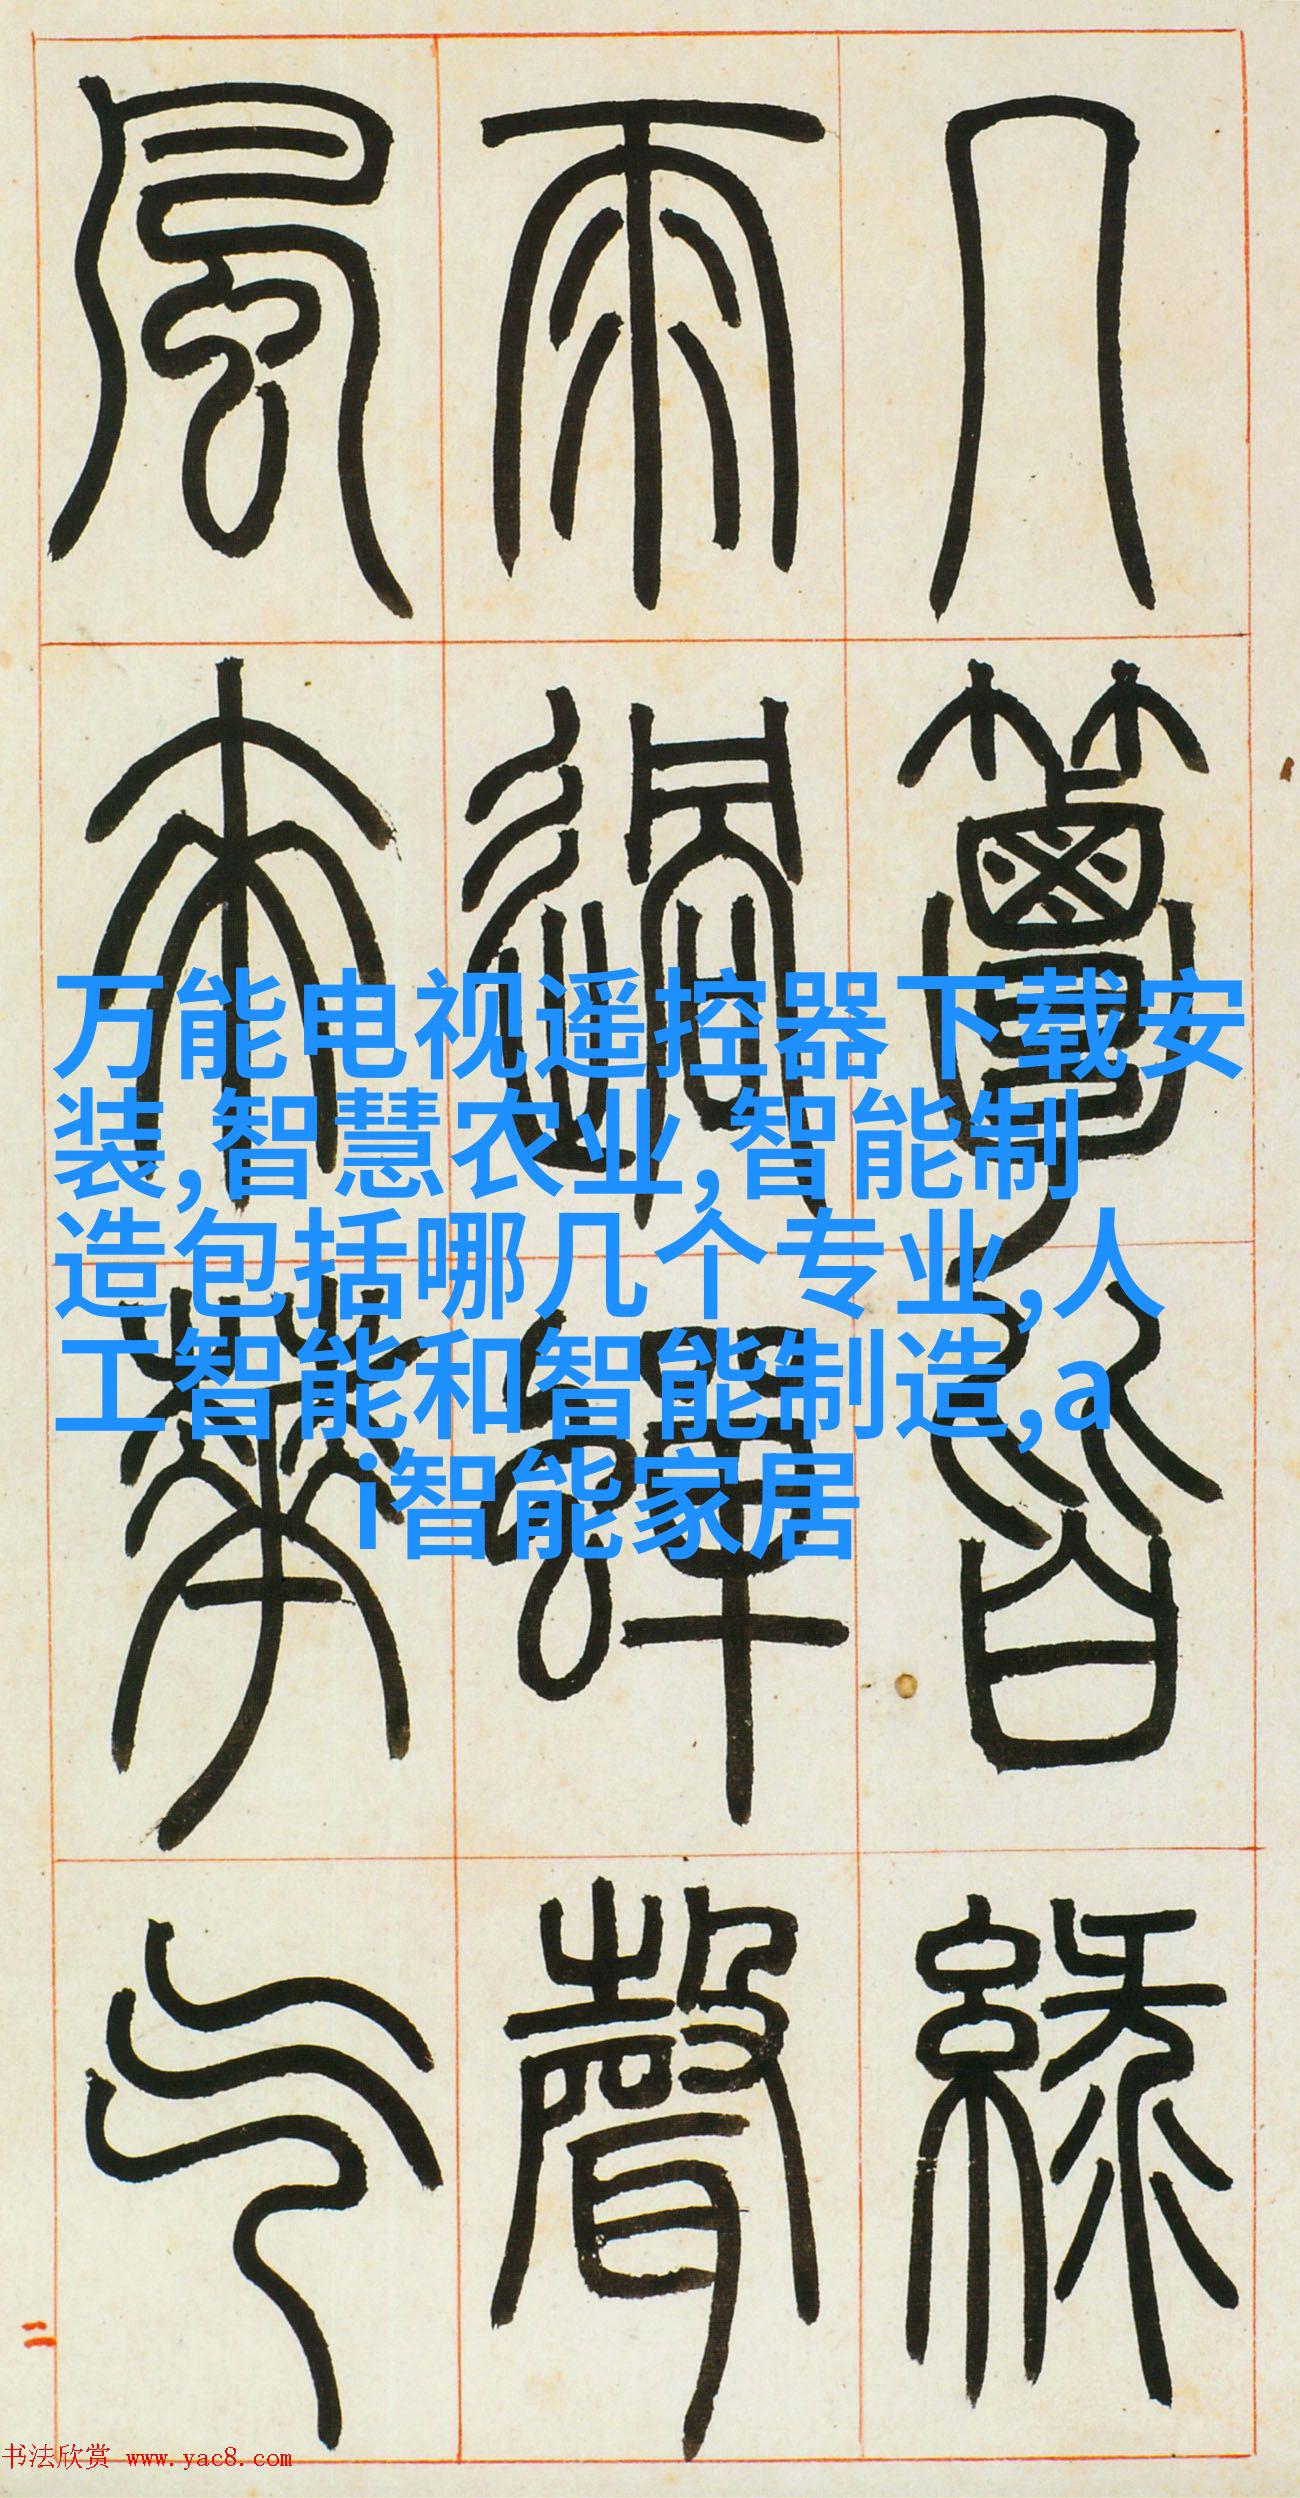 几簟皆綠
雨過蟬聲
風來華气
万能电视遥控器下载安
装,智慧农业,智能制
造包括哪几个专业,人
工智能和智能制造,a
i智能家居
二
书法欣赏 www.yac8.com